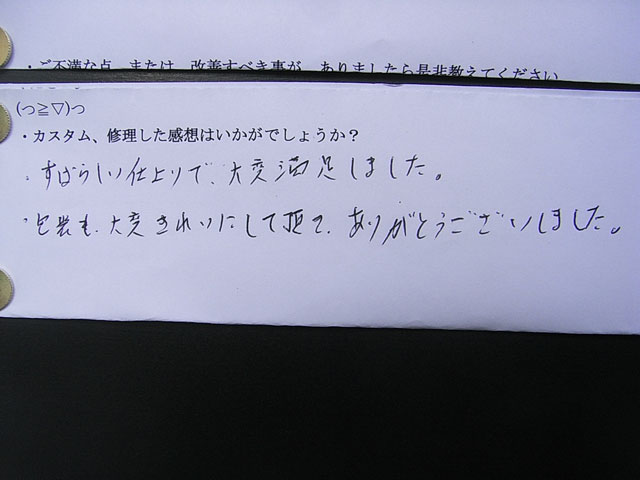 ・ご不満な点、または、改善すべき事が、ありましたら是非教えてください
(つ≧▽)つ
・カスタム、修理した感想はいかがでしょうか？
・すばらしい仕上りで、大変満足しました。
・包装も、大変きれいにして頂て、ありがとうございました。